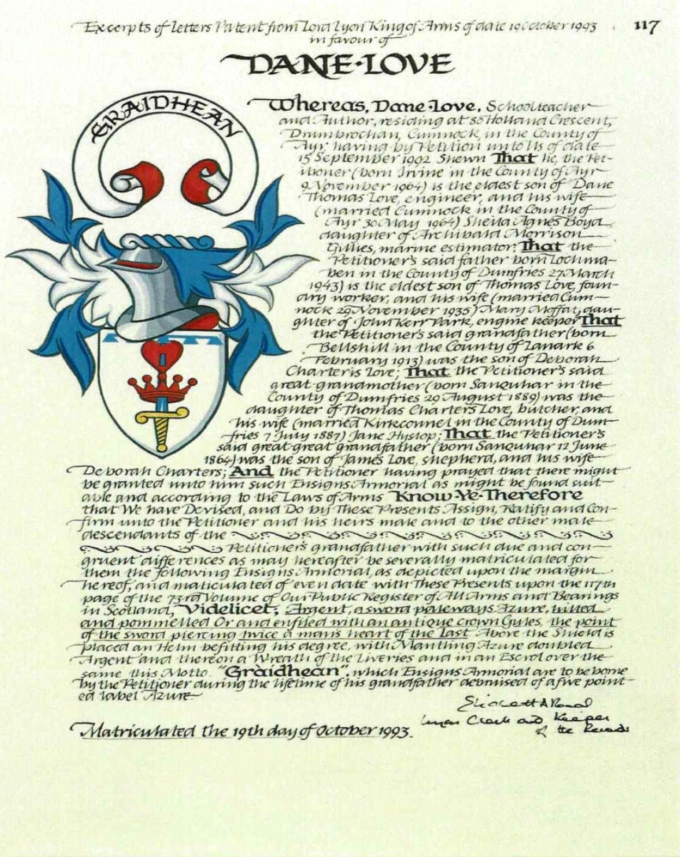 Excerpts of Letters Patent from Lord Lyon King of Arms of date 19 October 1993
117
in favour of
DANE·LOVE
GRAIDHEAN
Whereas, Dane Love, Schoolteacher
and Author, residing at 80 Holland Crescent,
Drumbrochan, Cumnock, in the County of
Ayr, having by Petition unto Us of date
15 September 1992 Shewn That he, the Pet-
itioner (born Irvine in the County of Ayr
9 November 1964) is the eldest son of Dane
Thomas Love, engineer, and his wife
(married Cumnock in the County of
Ayr 30 May 1964) Sheila Agnes Boyd,
daughter of Archibald Morrison
Gillies, marine estimator; That the
Petitioner's said father born Lochma-
ben in the County of Dumfries 27 March
1943) is the eldest son of Thomas Love, foun-
dry worker, and his wife (married Cum-
nock 29 November 1935) Mary Moffat, dau-
ghter of John Kerr Park, engine keeper That
the Petitioner's said grandfather (born
Bellshill in the County of Lanark 6
February 1913) was the son of Deborah
Charteris Love; That the Petitioner's said
great grandmother (born Sanquhar in the
County of Dumfries 29 August 1889) was the
daughter of Thomas Charters Love, butcher, and
his wife (married Kirkconnel in the County of Dum-
fries 7 July 1887) Jane Hyslop; That the Petitioner's
said great-great grandfather (born Sanquhar 12 June
1864) was the son of James Love, shepherd, and his wife
Deborah Charters; And the Petitioner having prayed that there might
be granted unto him such Ensigns Armorial as might be found suit-
able and according to the Laws of Arms Know Ye Therefore
that We have Devised, and Do by These Presents Assign, Ratify and Con-
firm unto the Petitioner and his heirs male and to the other male
descendants of the
Petitioner's grandfather with such due and con-
gruent differences as may hereafter be severally matriculated for
them the following Ensigns Armorial, as depicted upon the margin
hereof, and matriculated of even date with These Presents upon the 117th
page of the 73rd Volume of Our Public Register of All Arms and Bearings
in Scotland, Videlicet: Argent, a sword paleways Azure, hilted
and pommelled Or and enfiled with an antique crown Gules, the point
of the sword piercing twice a man's heart of the last Above the Shield is
placed an Helm befitting his degree, with Mantling Azure doubled
Argent and thereon a Wreath of the Liveries and in an Escrol over the
same this Motto "Graidhean", which Ensigns Armorial are to be borne
by the Petitioner during the lifetime of his grandfather debruised of a five point-
ed label Azure
Lyon Clerk and Keeper
of the Records
Matriculated the 19th day of October 1993.